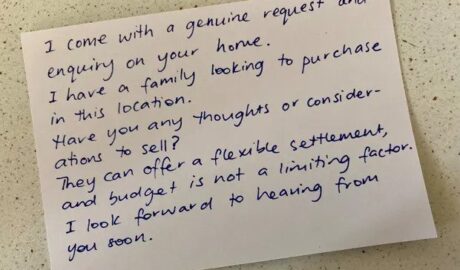 I come with a genuine request and
enquiry on your home.
I have a family looking to purchase
in this location.
Have you any thoughts or consider-
ations to sell?
They can offer a flexible settlement,
and budget is not a limiting factor.
I look forward to hearing from
you soon.